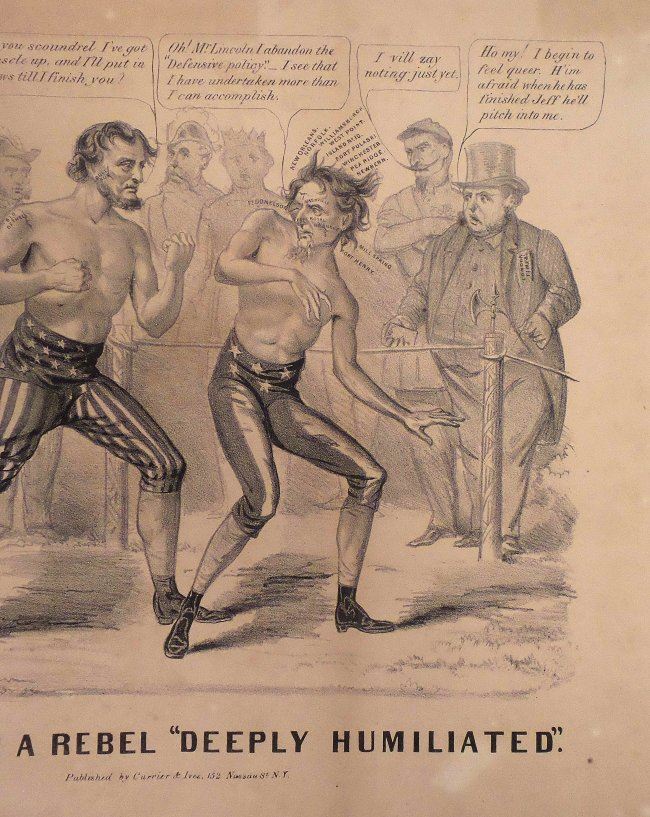 you scoundrel I've got
uscle up, and I'll put in
ws till I finish you?
Oh! Mr Lincoln I abandon the
"Defensive policy"... I see that
I have undertaken more than
I can accomplish.
I vill zay
noting just yet.
Ho my! I begin to
feel queer. H'im
afraid when he has
finished Jeff he'll
pitch into me.
NEW ORLEANS.
NORFOLK.
WILLIAMSBURGH
WEST POINT.
ISLAND No 10.
FORT PULASKI
WINCHESTER
PEA RIDGE.
NEWBERN.
FT DONELSON
MILL SPRING
FORT HENRY.
A REBEL "DEEPLY HUMILIATED".
Published by Currier & Ives, 152 Nassau St N.Y.